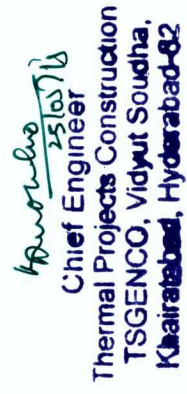 25/05/18
Chief Engineer
Thermal Projects Construction
TSGENCO, Vidyut Soudha,
Khairatabad, Hyderabad-82